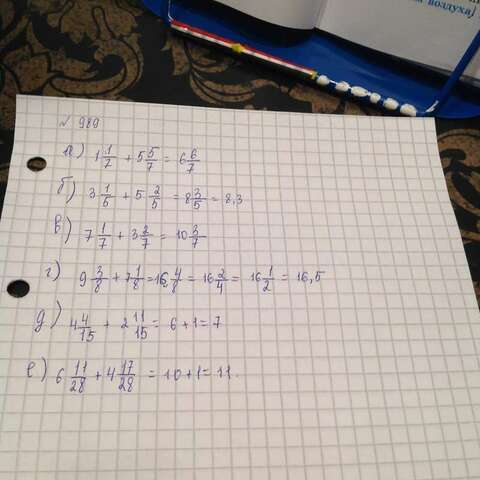 воздуха,
№ 989
а) 1 1/7 + 5 5/7 = 6 6/7
б) 3 1/5 + 5 2/5 = 8 3/5 = 8,3
в) 7 1/7 + 3 2/7 = 10 3/7
г) 9 3/8 + 7 1/8 = 16 4/8 = 16 2/4 = 16 1/2 = 16,5
д) 4 4/15 + 2 11/15 = 6 + 1 = 7
е) 6 11/28 + 4 17/28 = 10 + 1 = 11.